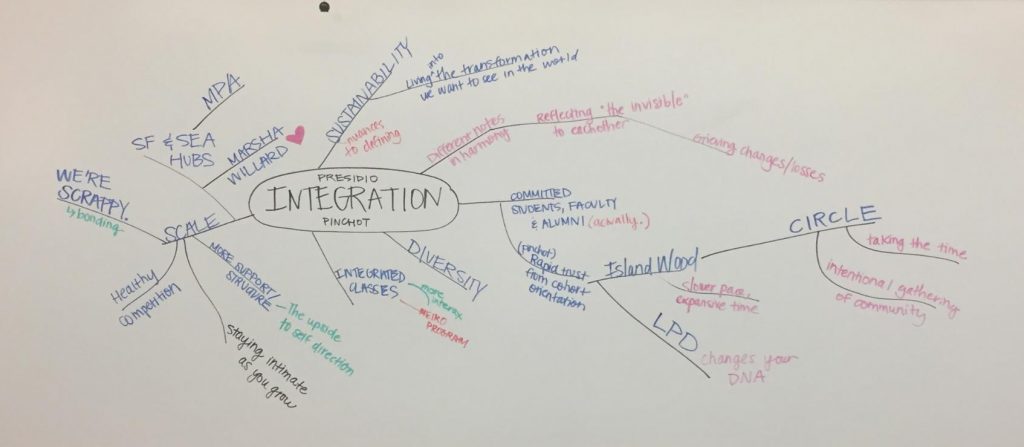 MPA
SF & SEA
HUBS
MARSHA
WILLARD
SUSTAINABILITY
nuances
to defining
Living into the transformation
we want to see in the world
Different notes
in harmony
Reflecting "the invisible"
to eachother
Grieving changes/losses
PRESIDIO
INTEGRATION
PINCHOT
WE'RE
SCRAPPY.
↳ bonding
SCALE
Healthy
competition
MORE SUPPORT/
STRUCTURE
The upside
to self direction
Staying intimate
as you grow
INTEGRATED
CLASSES
more
PROGRAM
DIVERSITY
COMMITTED
STUDENTS, FACULTY
& ALUMNI (actually.)
(pinchot)
Rapid trust
from cohort
orientation
Island Wood
slower pace,
expansive time
LPD
changes your
DNA
CIRCLE
taking the time
intentional gathering
of community